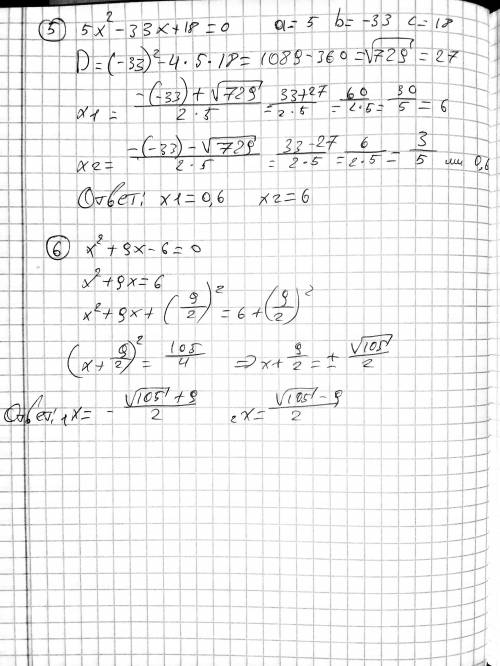 5 5x² - 33x + 18 = 0 a = 5 b = -33 c = 18
D = (-33)² - 4 · 5 · 18 = 1089 - 360 = √729 = 27
x1 = (-(-33) + √729) / (2 · 5) = (33 + 27) / (2 · 5) = 60 / (2 · 5) = 30 / 5 = 6
x2 = (-(-33) - √729) / (2 · 5) = (33 - 27) / (2 · 5) = 6 / (2 · 5) = 3 / 5 или 0,6
Ответ: x1 = 0,6 x2 = 6
6 x² + 9x - 6 = 0
x² + 9x = 6
x² + 9x + (9/2)² = 6 + (9/2)²
(x + 9/2)² = 105/4 => x + 9/2 = ± √105/2
Ответ: 1x = - (√105 + 9) / 2 2x = (√105 - 9) / 2